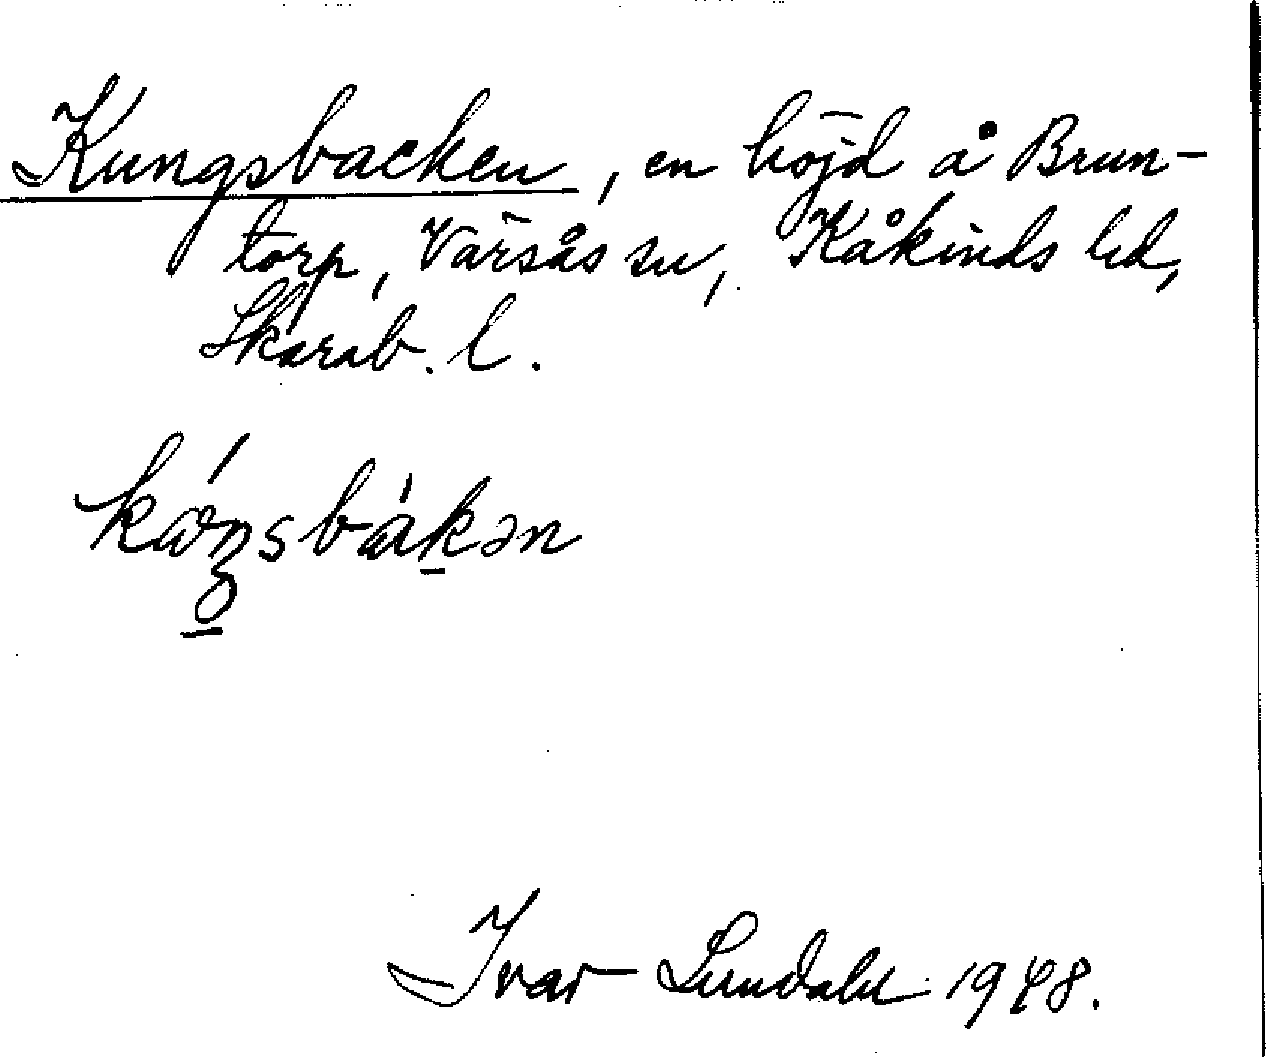 Kungsbacken, en höjd å Brun-
torp, Värsås sn, Kåkinds hd,
Skarab. l.
bákən
Ivar Lundahl 1948.